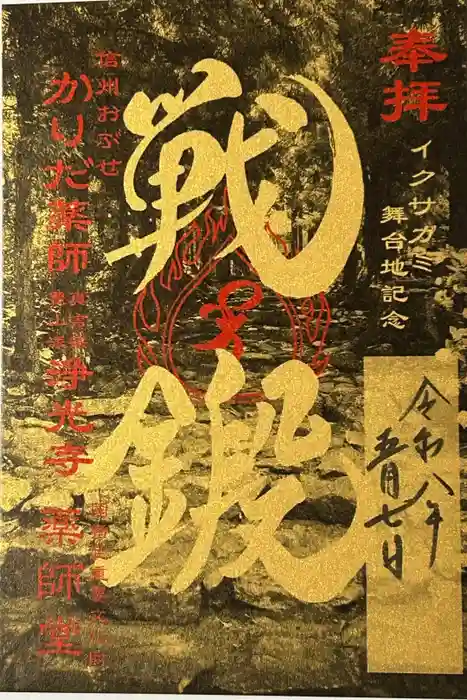 奉拝
イクサガミ
舞台地記念
令和八年
五月七日
戦
鍛
信州おぶせ
かりだ薬師
浄光寺
薬師堂
国指定重要文化財